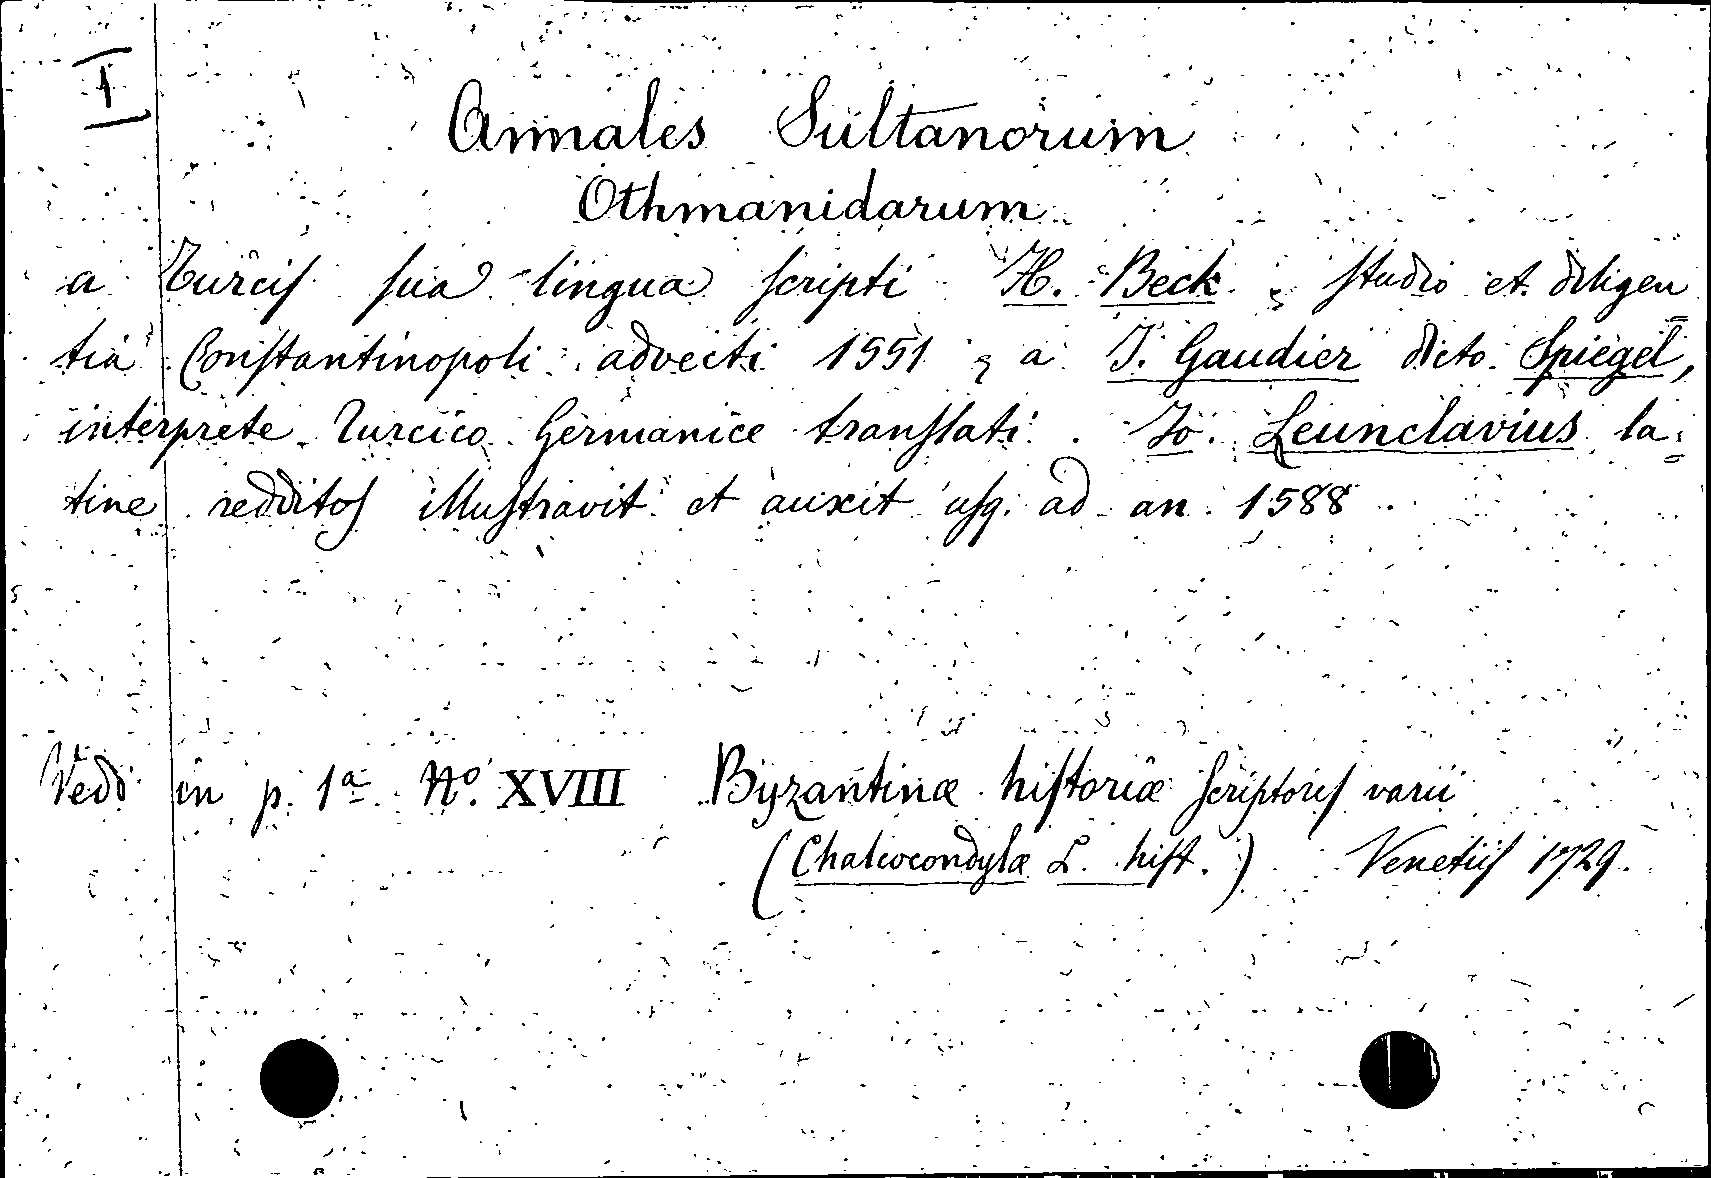 I
Annales Sultanorum
Othmanidarum
a Turciſ ſua lingua ſcripti H. Beck ; ſtudio et diligen
tia Conſtantinopoli advecti 1551 ; a J. Gaudier dicto Spiegel,
interprete Turcico Germanice tranſlati. Jo. Leunclavius la=
tine redditoſ illuſtravit et auxit uſq. ad an. 1588.
Vedi in p. 1ª Nº XVIII Byzantinæ hiſtoriæ ſcriptoreſ varii
(Chalcocondylæ L. hiſt.) Venetiiſ 1729.